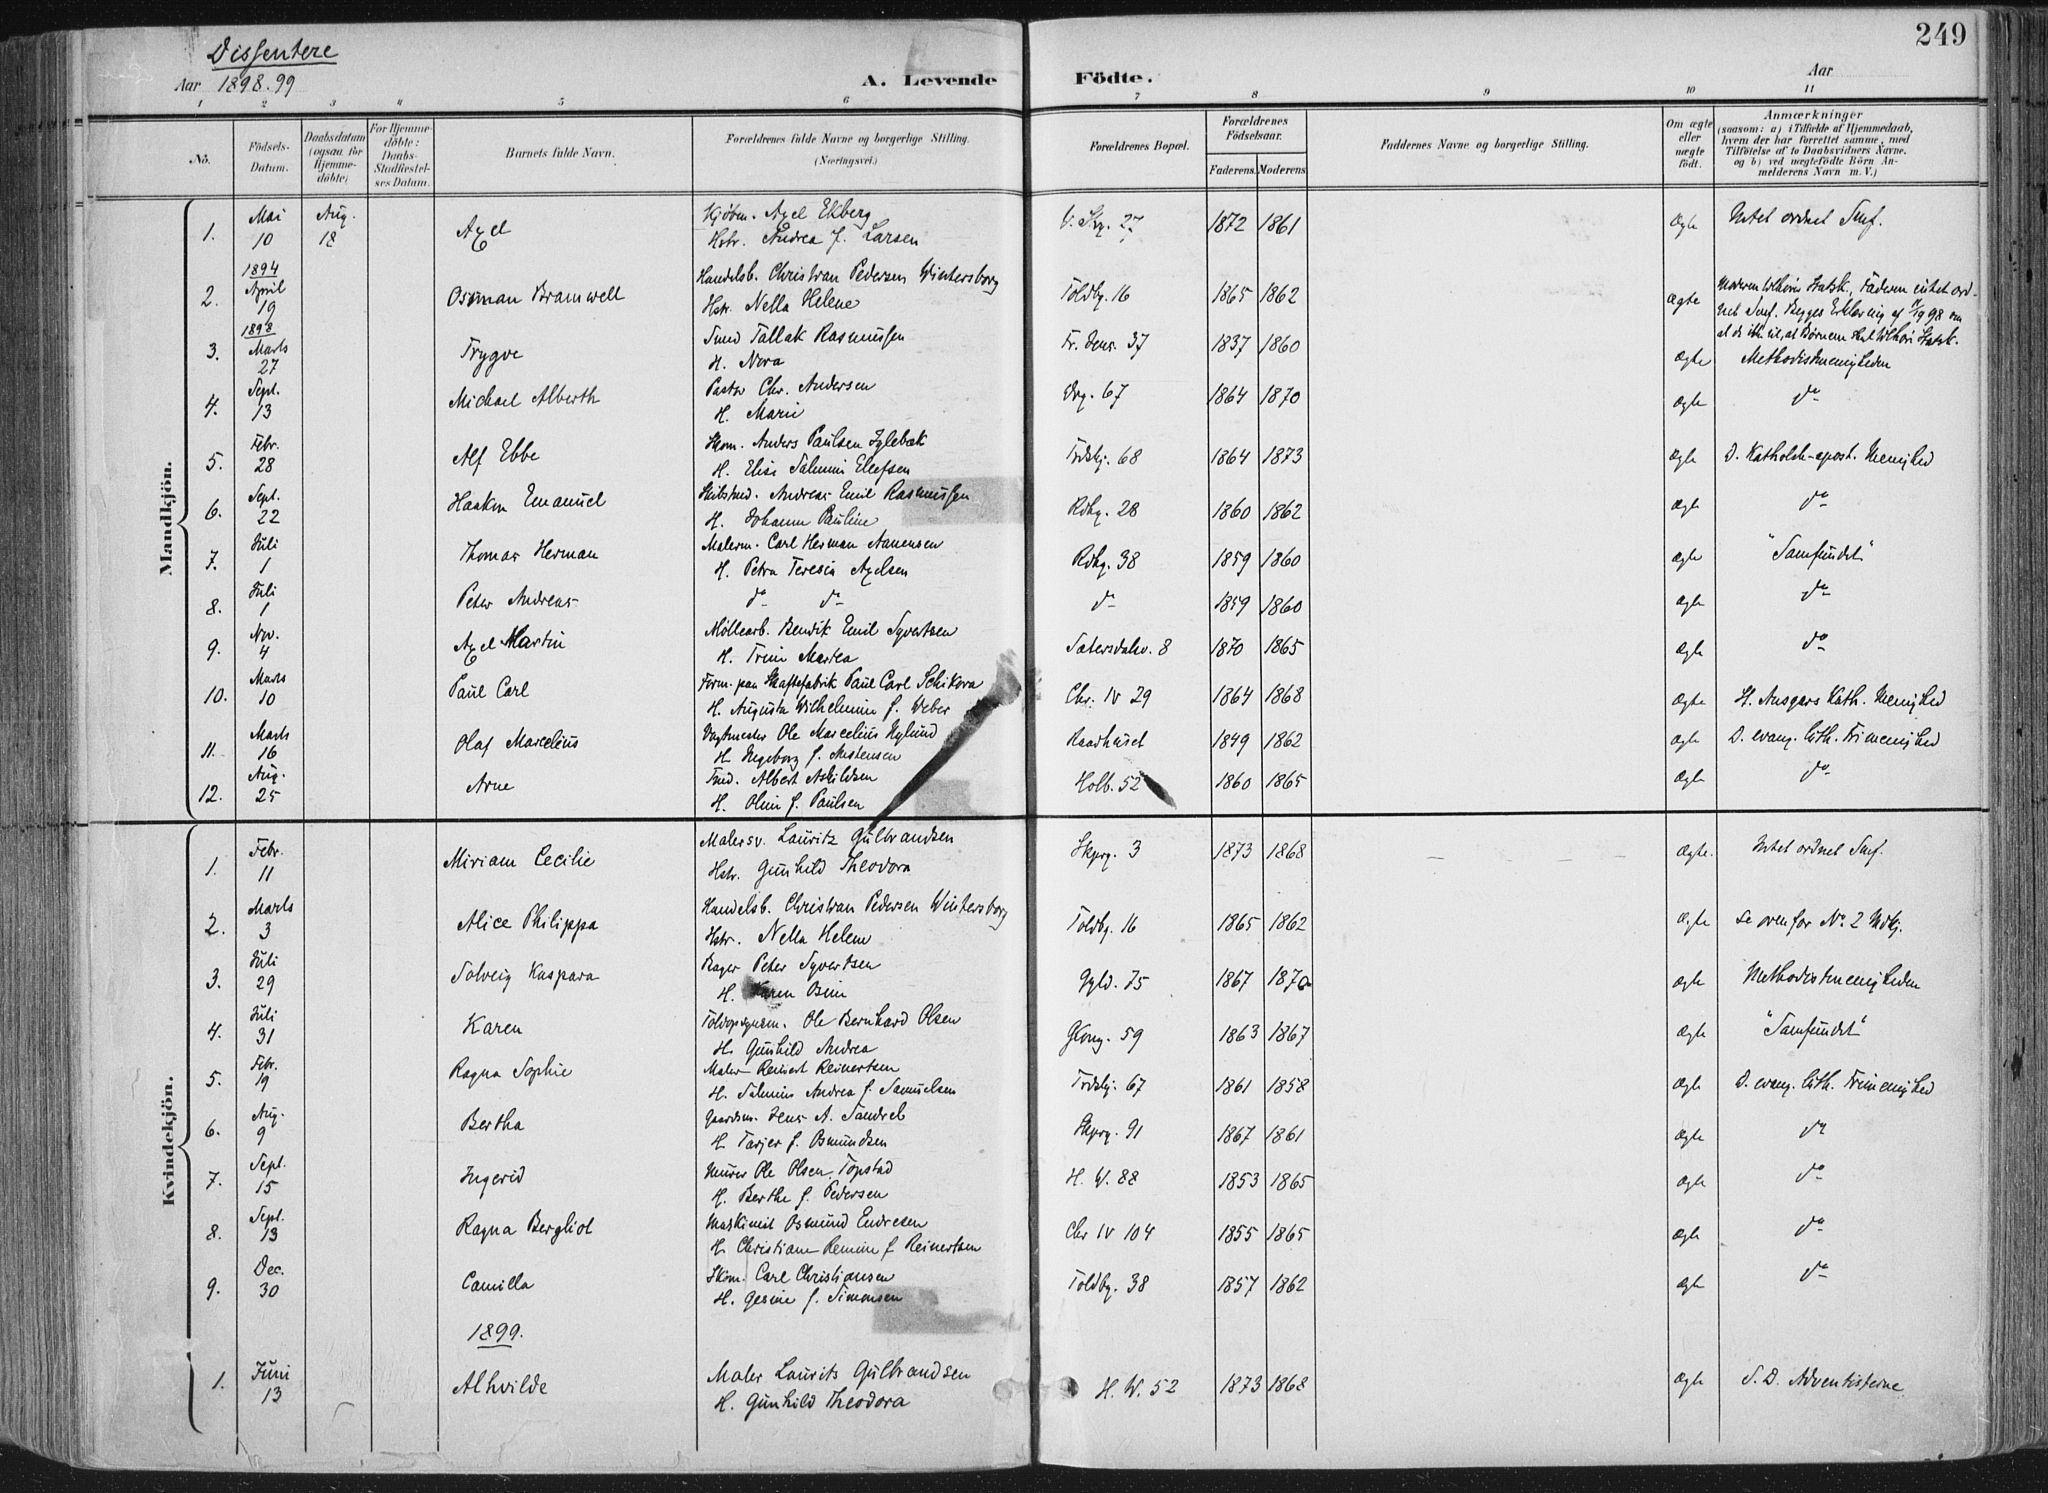 249
Dissentere
Aar 1898.99
A. Levende Födte.
Aar
1 2 3 4 5 6 7 8 9 10 11
No.
Födsels-Datum.
Daabsdatum (ogsaa for Hjemme-döbte)
For Hjemme-döbte: Daabs-Stadfæstel-ses Datum.
Barnets fulde Navn.
Forældrenes fulde Navne og borgerlige Stilling. (Næringsvei.)
Forældrenes Bopæl.
Forældrenes Födselsaar. Faderens. Moderens
Faddernes Navne og borgerlige Stilling.
Om ægte eller uægte födt.
Anmærkninger (saasom: a) i Tilfælde af Hjemmedaab, hvem der har forrettet samme, med Tilföielse af to Daabsvidners Navne, og b) ved uægtefödte Börn An-melderens Navn m. V.)
Mandkjön.
1. Mai 10 Aug. 18 Axel Kjöbm. Axel Ekberg V. Skg. 27 1872 1861 Ægte Intet ordnet Smf.
Hstr. Andrea f. Larsen
1894
2. April 19 Osman Bramwell Handelsb. Christian Pedersen Wintersborg Toldbg. 16 1865 1862 Ægte Moderen tilhörer Statsk., Faderen intet ord-
Hstr. Nella Helene net Smf. Begges Erklæring af 98 om
1898 at de at Börnene skal tilhöre Statsk.
3. Marts 27 Trygve Tallak Rasmussen Fr. Jens. 37 1837 1860 ægte Methodistmenigheden
H. Nora
4. Sept. 13 Michael Alberth Pastor Chr. Andersen 67 1864 1870 ægte do
H. Marie
5. Febr. 28 Alf Ebbe Skom. Anders Paulsen Iglebæk Tordskj. 68 1864 1873 ægte D. Katholsk-apost. Menighed
H. Elise Salmine Elefsen
6. Sept. 22 Haakon Emanuel Skibstmd. Andreas Emil Rasmussen Rdhg. 28 1860 1862 ægte do
H. Johanne Pauline
7. Juli 1 Thomas Herman Malerm. Carl Herman Aanensen Rdhg. 38 1859 1860 ægte "Samfundet"
H. Petra Teresia Axelsen
8. Juli 1 Peter Andreas do do do 1859 1860 ægte do
9. Nov. 4 Axel Martin Möllearb. Bendik Emil Syvertsen Sætersdalsv. 8 1870 1865 ægte do
H. Trine Martea
10. Marts 10 Paul Carl Form. paa Skaftefabrik Paul Carl Schikora Chr. IV 29 1864 1868 Ægte St. Ansgars Kath. Menighed
H. Augusta Wilhelmine f. Weber
11. Marts 16 Olaf Marcelius Vagtmester Ole Marcelius Nylund Raadhuset 1849 1862 ægte D. evang. luth. Frimenighed
H. Ingeborg f. Mortensen
12. Aug. 25 Arne Albert Askildsen Holb. 52 1860 1865 ægte do
H. Oline f. Paulsen
Kvindekjön.
1. Febr. 11 Miriam Cecilie Malersv. Lauritz Gulbrandsen Skprg. 3 1873 1868 Ægte. Intet ordnet Smf.
Hstr. Gunhild Theodora
2. Marts 3 Alice Philippa Handelsb. Christian Pedersen Wintersborg Toldbg. 16 1865 1862 Ægte se ovenfor No. 2 Mdkj.
Hstr. Nella Helene
3. Juli 29 Solveig Kaspara Bager Peter Syvertsen Gyld. 75 1867 1870 ægte Methodistmenigheden
H. Karen Osine
4. Juli 31 Karen Toldopsynsm. Ole Bernhard Olsen Kong. 59 1863 1867 Ægte "Samfundet"
H. Gunhild Andrea
5. Febr. 19 Ragna Sophie Maler Reinert Reinertsen Tordskj. 67 1861 1858 ægte D. evang. luth. Frimenighed
H. Salmine Andrea f. Samuelsen
6. Aug. 9 Bertha Gaardsm. Jens A. Sandrel Skprg. 91 1867 1861 Ægte do
H. Tarjer f. Osmundsen
7. Sept. 15 Ingerid Murer Ole Olsen Topstad H. W. 88 1853 1865 ægte do
H. Berthe f. Pedersen
8. Sept. 13 Ragna Bergliot Maskinist Osmund Endresen Chr IV 104 1855 1865 ægte do
H. Christiane Remine f. Reinertsen
9. Dec. 30 Camilla Skom. Carl Christiansen Toldbg. 38 1857 1862 ægte do
H. Gesine f. Simonsen
1899.
1. Juni 13 Alhvilde Maler Laurits Gulbrandsen H. W. 52 1873 1868 ægte S. D. Adventisterne
H. Gunhild Theodora